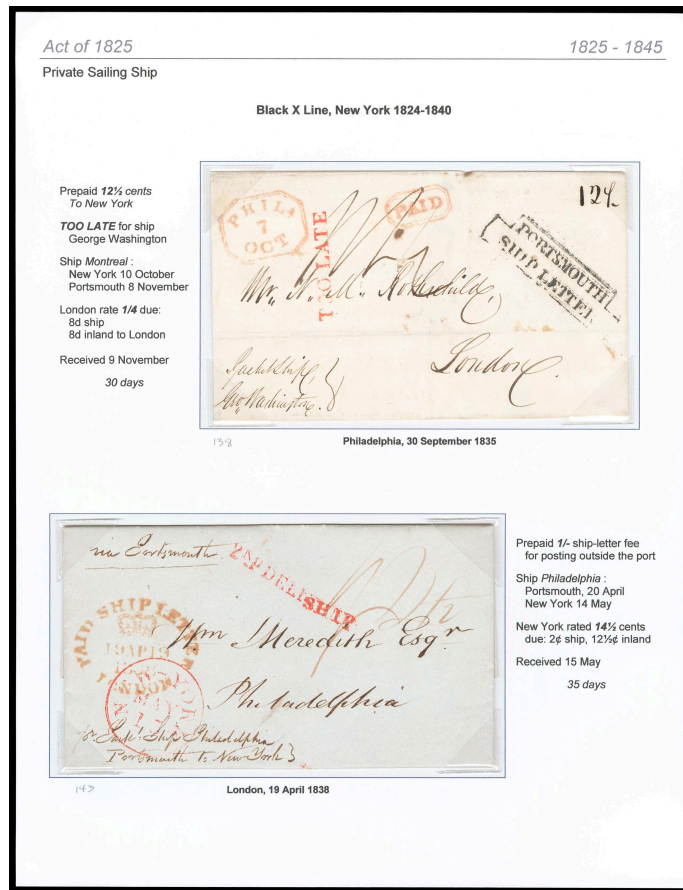 Act of 1825
1825 - 1845
Private Sailing Ship
Black X Line, New York 1824-1840
Prepaid 12½ cents
To New York
TOO LATE for ship
George Washington
Ship Montreal :
New York 10 October
Portsmouth 8 November
London rate 1/4 due:
8d ship
8d inland to London
Received 9 November
30 days
PHILA
7
OCT
TOO LATE
PAID
PORTSMOUTH
SHIP LETTER
Mr. N. M. Rothschild,
London
Packet Ship,
Geo. Washington.
138
Philadelphia, 30 September 1835
via Portsmouth
SHIP
PAID SHIP LETTER
19 AP 19
LONDON
Wm Meredith Esqr
Philadelphia
pr Packt Ship Philadelphia
Portsmouth To New York
143
London, 19 April 1838
Prepaid 1/- ship-letter fee
for posting outside the port
Ship Philadelphia :
Portsmouth, 20 April
New York 14 May
New York rated 14½ cents
due: 2¢ ship, 12½¢ inland
Received 15 May
35 days